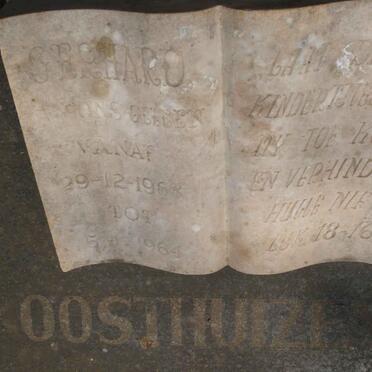 GERHARD
ONS GELEEN
VANAF
29-12-196
TOT
1964
LAAT
KINDERTJIES
MY TOE
EN VERHIND
HULLE NIE
LUK 18-16
OOSTHUIZE